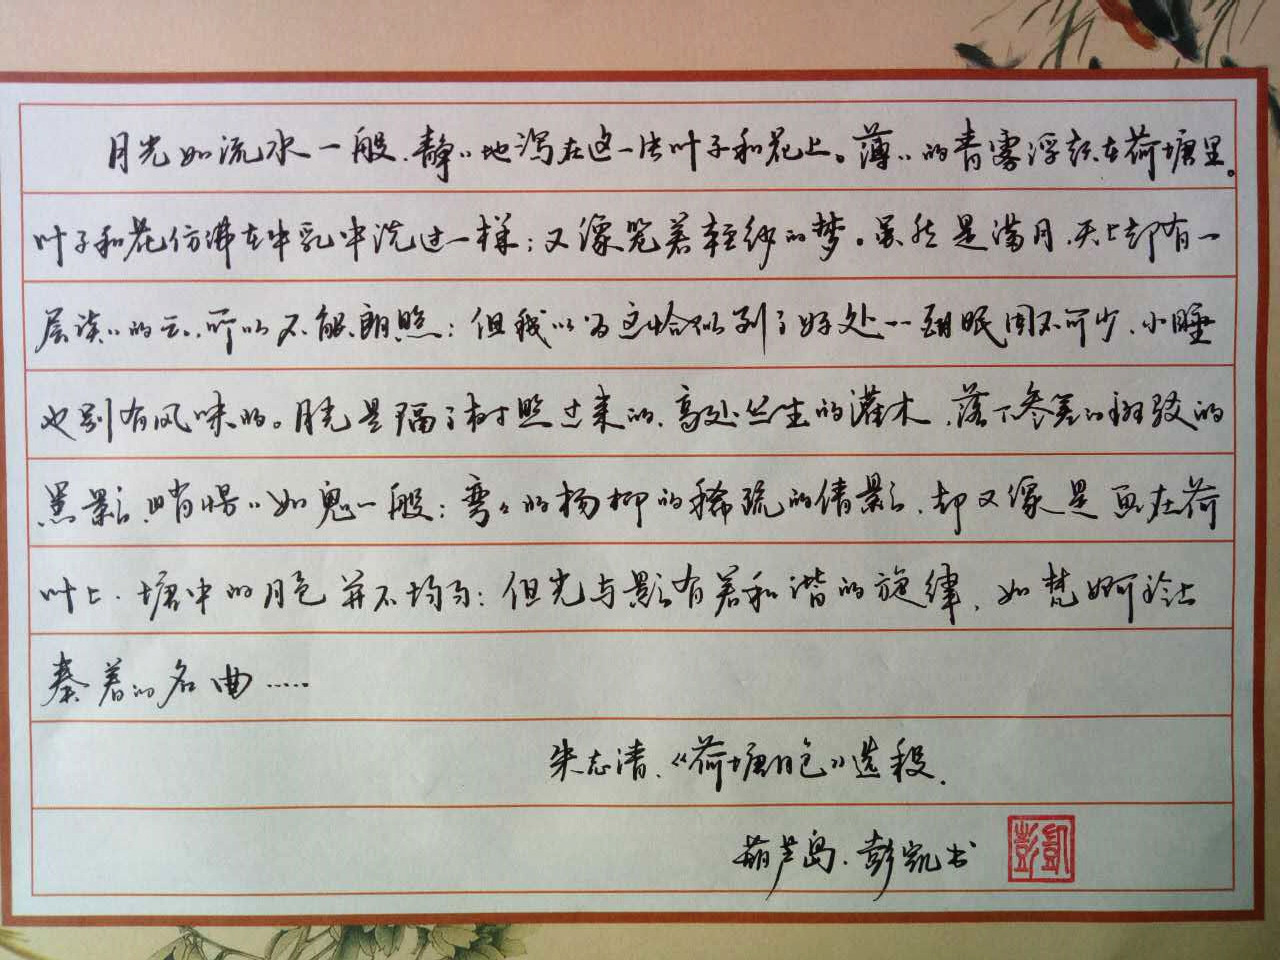 月光如流水一般，静静地泻在这一片叶子和花上。薄薄的青雾浮起在荷塘里。
叶子和花仿佛在牛乳中洗过一样；又像笼着轻纱的梦。虽然是满月，天上却有一
层淡淡的云，所以不能朗照；但我以为这恰似到了好处——酣眠固不可少，小睡
也别有风味的。月光是隔了树照过来的，高处丛生的灌木，落下参差的斑驳的
黑影，峭愣愣如鬼一般；弯弯的杨柳的稀疏的倩影，却又像是画在荷
叶上，塘中的月色并不均匀；但光与影有着和谐的旋律，如梵婀玲上
奏着的名曲……
朱志清，《荷塘月色》选段.
葫芦岛.彭凯书
彭凯